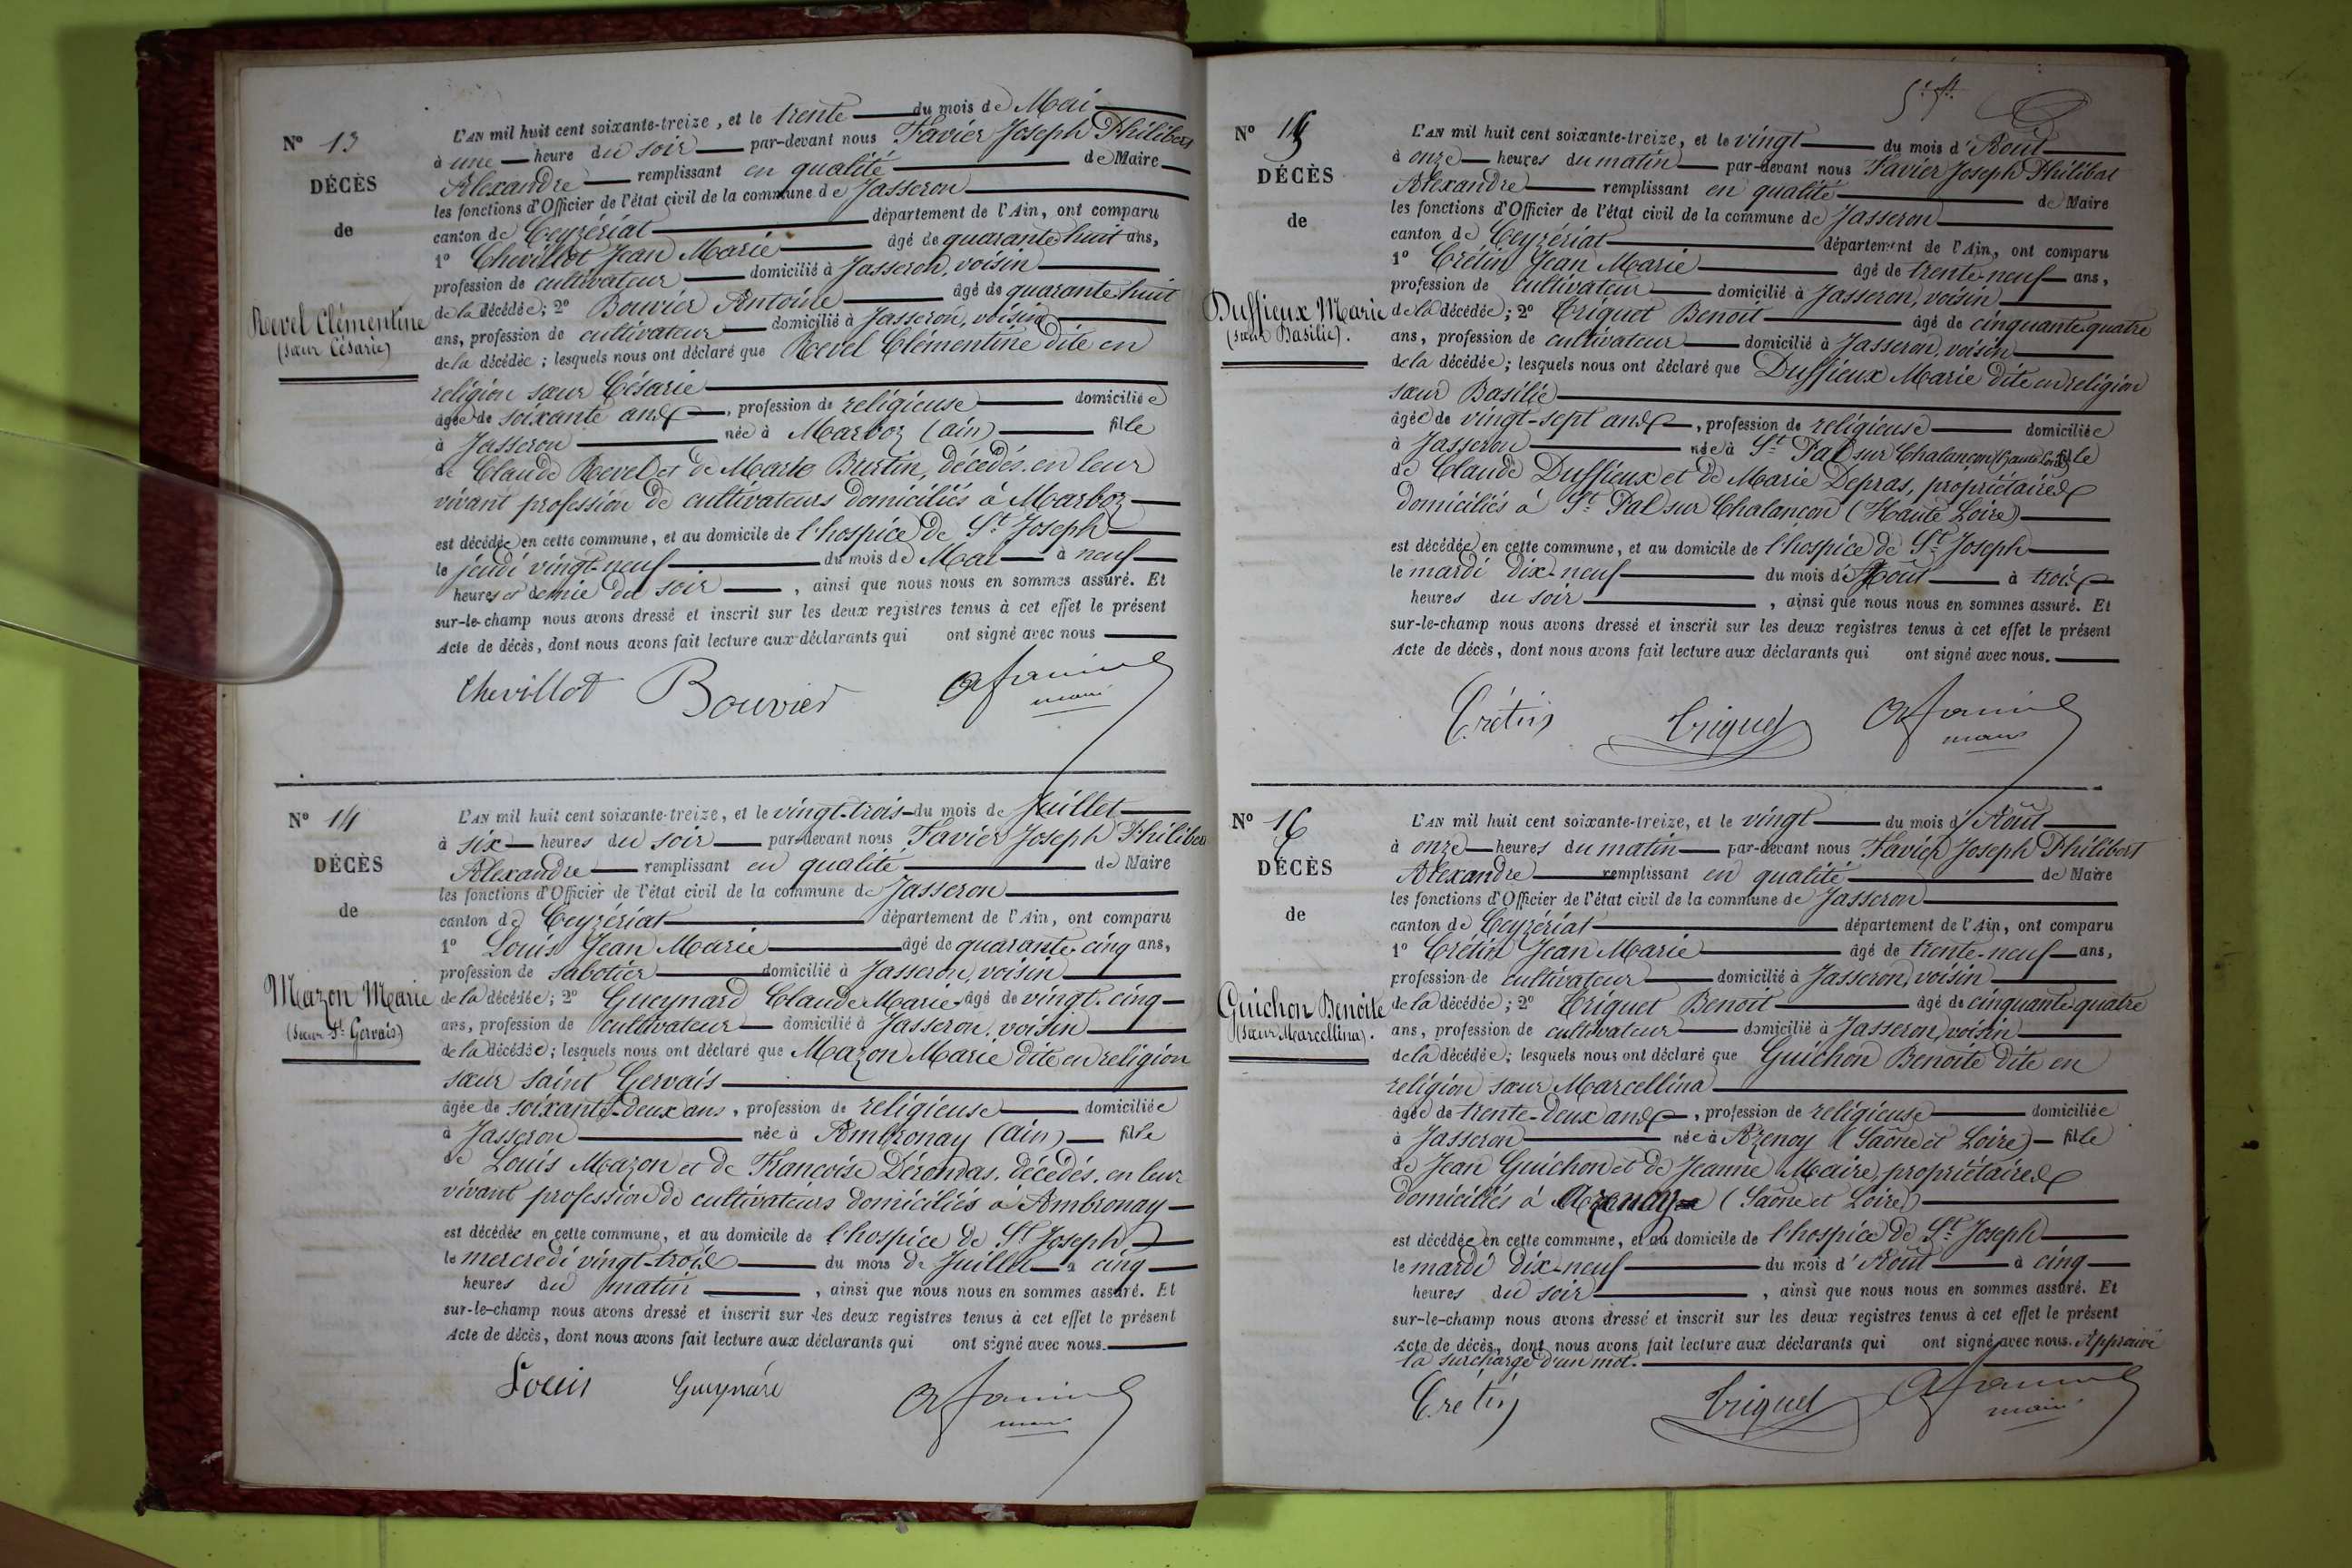 N° 13
DÉCÈS
de
Revel Clémentine
(sœur Césarie)
L'AN mil huit cent soixante-treize, et le trente du mois de Mai
à une heure du soir par-devant nous Favier Joseph Philibert
Alexandre remplissant en qualité de Maire
les fonctions d'Officier de l'état civil de la commune de Jasseron
canton de Ceyzériat département de l'Ain, ont comparu
1° Chevillot Jean Marie âgé de quarante huit ans,
profession de cultivateur domicilié à Jasseron, voisin
de la décédée; 2° Bouvier Antoine âgé de quarante huit
ans, profession de cultivateur domicilié à Jasseron, voisin
de la décédée; lesquels nous ont déclaré que Revel Clémentine dite en
religion sœur Césarie
âgée de soixante ans, profession de religieuse domiciliée
à Jasseron née à Marboz (ain) fille
de Claude Revel et de Marie Burtin, décédés, en leur
vivant profession de cultivateurs domiciliés à Marboz
est décédée en cette commune, et au domicile de l'hospice de St Joseph
le jeudi vingt-neuf du mois de Mai à neuf
heures et demie du soir, ainsi que nous nous en sommes assuré. Et
sur-le-champ nous avons dressé et inscrit sur les deux registres tenus à cet effet le présent
Acte de décès, dont nous avons fait lecture aux déclarants qui ont signé avec nous
Chevillot Bouvier
N° 14
DÉCÈS
de
Mazon Marie
(sœur St Gervais)
L'AN mil huit cent soixante-treize, et le vingt-trois du mois de Juillet
à six heures du soir par-devant nous Favier Joseph Philibert
Alexandre remplissant en qualité de Maire
les fonctions d'Officier de l'état civil de la commune de Jasseron
canton de Ceyzériat département de l'Ain, ont comparu
1° Louis Jean Marie âgé de quarante-cinq ans,
profession de sabotier domicilié à Jasseron, voisin
de la décédée; 2° Gueynard Claude Marie âgé de vingt-cinq
ans, profession de cultivateur domicilié à Jasseron, voisin
de la décédée; lesquels nous ont déclaré que Mazon Marie dite en religion
sœur saint Gervais
âgée de soixante-deux ans, profession de religieuse domiciliée
à Jasseron née à Ambronay (ain) fille
de Louis Mazon et de Françoise Dérondas, décédés, en leur
vivant profession de cultivateurs domiciliés à Ambronay
est décédée en cette commune, et au domicile de l'hospice de St Joseph
le mercredi vingt-trois du mois de Juillet à cinq
heures du matin, ainsi que nous nous en sommes assuré. Et
sur-le-champ nous avons dressé et inscrit sur les deux registres tenus à cet effet le présent
Acte de décès, dont nous avons fait lecture aux déclarants qui ont signé avec nous.
Louis Gueynard
N° 15
DÉCÈS
de
Duffieux Marie
(sœur Basilie).
L'AN mil huit cent soixante-treize, et le vingt du mois d'Août
à onze heures du matin par-devant nous Favier Joseph Philibert
Alexandre remplissant en qualité de Maire
les fonctions d'Officier de l'état civil de la commune de Jasseron
canton de Ceyzériat département de l'Ain, ont comparu
1° Crétin Jean Marie âgé de trente-neuf ans,
profession de cultivateur domicilié à Jasseron, voisin
de la décédée; 2° Triquet Benoit âgé de cinquante quatre
ans, profession de cultivateur domicilié à Jasseron, voisin
de la décédée; lesquels nous ont déclaré que Duffieux Marie dite en religion
sœur Basilie
âgée de vingt-sept ans, profession de religieuse domiciliée
à Jasseron née à St Pal sur Chalançon (Haute Loire) fille
de Claude Duffieux et de Marie Depras, propriétaires
domiciliés à St Pal sur Chalançon (Haute Loire)
est décédée en cette commune, et au domicile de l'hospice de St Joseph
le mardi dix-neuf du mois d'Août à trois
heures du soir, ainsi que nous nous en sommes assuré. Et
sur-le-champ nous avons dressé et inscrit sur les deux registres tenus à cet effet le présent
Acte de décès, dont nous avons fait lecture aux déclarants qui ont signé avec nous.
Crétin Triquet
N° 16
DÉCÈS
de
Guichon Benoite
(sœur Marcellina).
L'AN mil huit cent soixante-treize, et le vingt du mois d'Août
à onze heures du matin par-devant nous Favier Joseph Philibert
Alexandre remplissant en qualité de Maire
les fonctions d'Officier de l'état civil de la commune de Jasseron
canton de Ceyzériat département de l'Ain, ont comparu
1° Crétin Jean Marie âgé de trente-neuf ans,
profession de cultivateur domicilié à Jasseron, voisin
de la décédée; 2° Triquet Benoit âgé de cinquante quatre
ans, profession de cultivateur domicilié à Jasseron, voisin
de la décédée; lesquels nous ont déclaré que Guichon Benoite dite en
religion sœur Marcellina
âgée de trente-deux ans, profession de religieuse domiciliée
à Jasseron née à Azenoy (Saône et Loire) fille
de Jean Guichon et de Jeanne Maire, propriétaires
domiciliés à (Saône et Loire)
est décédée en cette commune, et au domicile de l'hospice de St Joseph
le mardi dix-neuf du mois d'Août à cinq
heures du soir, ainsi que nous nous en sommes assuré. Et
sur-le-champ nous avons dressé et inscrit sur les deux registres tenus à cet effet le présent
Acte de décès, dont nous avons fait lecture aux déclarants qui ont signé avec nous. Approuvé
la surcharge d'un mot.
Crétin Triquet